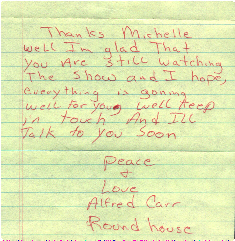 Thanks Michelle
well I'm glad That
you Are still watching
The show and I hope,
everything is goning
well for you, well keep
in touch And I'll
Talk to you soon
Peace
&
Love
Alfred Carr
Roundhouse